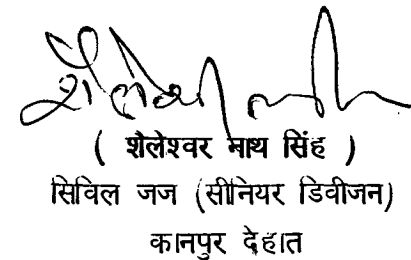 ( शैलेश्वर नाथ सिंह )
सिविल जज (सीनियर डिवीजन)
कानपुर देहात